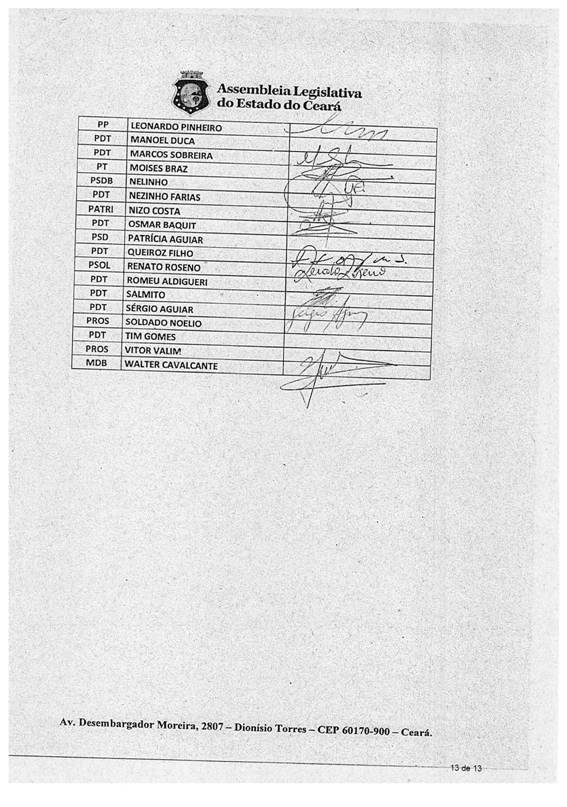 Assembleia Legislativa
do Estado do Ceará
PP LEONARDO PINHEIRO
PDT MANOEL DUCA
PDT MARCOS SOBREIRA
PT MOISES BRAZ
PSDB NELINHO
PDT NEZINHO FARIAS
PATRI NIZO COSTA
PDT OSMAR BAQUIT
PSD PATRÍCIA AGUIAR
PDT QUEIROZ FILHO
PSOL RENATO ROSENO Renato Roseno
PDT ROMEU ALDIGUERI
PDT SALMITO
PDT SÉRGIO AGUIAR
PROS SOLDADO NOELIO
PDT TIM GOMES
PROS VITOR VALIM
MDB WALTER CAVALCANTE
Av. Desembargador Moreira, 2807 – Dionísio Torres – CEP 60170-900 – Ceará.
13 de 13